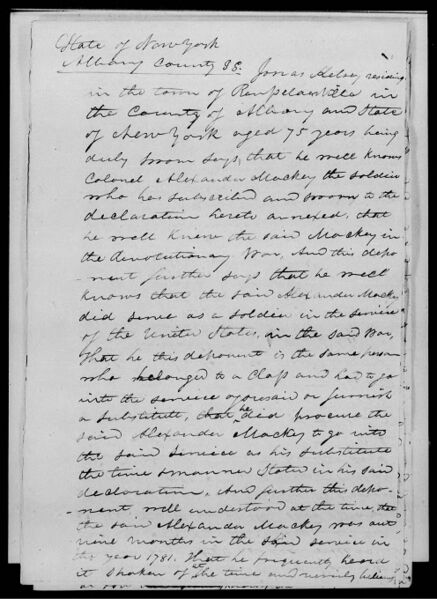 State of New York
Albany County SS. Jonas Kelsey residing
in the town of Renselaerville in
the County of Albany and State
of New York aged 75 years being
duly sworn says, that he well knows
Colonel Alexander Mackey the soldier
who has subscribed and sworn to the
declaration hereto annexed, that
he well knew the said Mackey in
the Revolutionary War, And this depo-
nent further says that he well
knows that the said Alexander Mackey
did serve as a soldier in the service
of the United States, in the said War,
That he this deponent is the same person
who belonged to a Class and had to go
into the service aforesaid or furnish
a substitute, that he did procure the
said Alexander Mackey to go into
the said service as his substitute
the time & manner Stated in his said
declaration, And further this depo-
nent well understood at the time, that
the said Alexander Mackey was out
nine months in the said service in
the year 1781. That he frequently heard
it spoken of at the time and verily believes